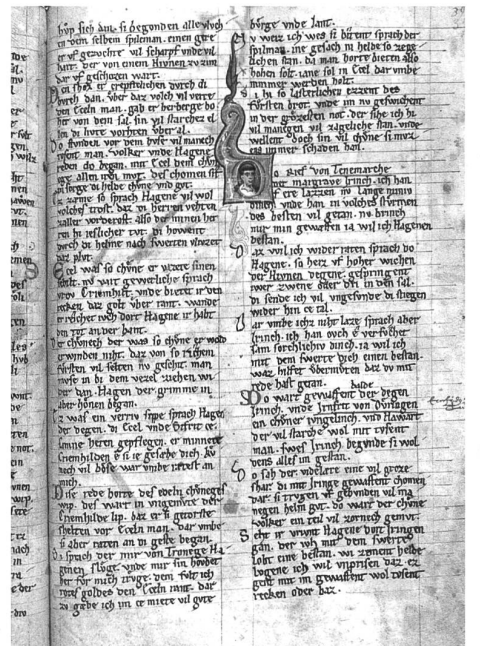 hůp sich dan. si begonden alle vluch
in dem selbem spileman. einen gere
er vf gezvchte vil scharpf vnde
dar von einem Hivnen zv zim
dar vf geschozen wart.
Den schoz er creftechlichen durch di
bvrch dan. vber daz volch vil verre
den Eceln man. gab er herberge
hoher von dem sal. sin vil starchez el
len di livte vorhten vber al.
Do stvnden vor dem hvse vil manech
tvsent man. Volker vnde Hagene
reden do began. mit Ecel dem chůn
ege allen iren mvt. des chomen sit
in sorge di helde chůne vnd gvt.
Ez zæme so sprach Hagene vil wol
volches trost. daz di herren vehten
aller vorderost. also der minen her
ren hi ieslicher tvt. di howent
durch di helme nach swerten vlivzet
daz plvt.
Ecel was so chůne er vazte sinen
schilt. nv vart gewerliche sprach
vrov Criemhilt. vnde bietet ir den
recken daz golt vber rant. wande
erreichet ivch dort Hagne ir habt
den tot an der hant.
Der chůnech der was so chůne er wold
erwinden niht. daz von so richem
fvrsten vil selten nv geschiht. man
mvse in bi dem vezel ziehen wi
der dan. Hagen der grimme in
aber hŏnen began.
Ez was ein verriv sippe sprach Hagen
der degen. di Ecel vnde Sifrit ce
samne heten gepflegen. er minnete
Criemhilden e si ie gesæhe dich. kv
nech vil bŏse war vmbe rætest an
mich.
Dise rede horte des edeln chůneges
wip. des wart in vngemvte der
Criemhilde lip. daz er si getorste
schelten vor Eceln man. dar vmbe
si aber raten an di geste began.
Si sprach der mir von Tronege Ha
genen slvge. vnde mir sin hovbet
her fůr mich trvge. dem fvlt ich
rotes goldes den Eceln rant. dar
zv gæbe ich im ce miete vil gvte
bůrge vnde lant.
Nv weiz ich wes si bitent sprach der
spilman. ine gesach ni helde so zege
lichen stan. da man horte bieten also
hohen solt. iane sol in Ecel dar vmbe
nimmer werden holt.
Di hi so lasterlichen ezzent des
fůrsten brot. vnde im nv geswichent
in der grozesten not. der sihe ich hi
vil manegen vil zageliche stan. vnde
wellent doch sin vil chůne si mvz
ens immer schaden han.
Do rief von Tenemarche
der margrave Irinch. ich han
vf ere lazzen nv lange miniv
dinch. vnde han in volches stvrmen
des besten vil getan. nv brinch
mir min gewæfen ia wil ich Hagenen
bestan.
Daz wil ich widerraten sprach do
Hagene. so heiz vf hoher wichen
der Hivnen degene. gespringent
iwer zwene oder dri in den sal.
di sende ich vil vngesvnde di stiegen
wider hin ce tal.
Dar vmbe ichz niht laze sprach aber
Irinch. ich han ovch e versvchet
sam sorchlichiv dinch. ia wil ich
mit dem swerte dich einen bestan.
waz hilfet vbermvten daz dv mit
rede hast getan.
Do wart gewæfent balde der degen
Irinch. vnde Irnfrit von Dvringen
ein chůner ivngelinch. vnd Hawart
der vil starche wol mit tvsent
man. swes Irinch begvnde si wol
dens alles im gestan.
Do sah der videlære eine vil groze
schar. di mit Iringe gewæfent chomen
dar. si trvgen vf gebvnden vil ma
negen helm gvt. do wart der chůne
Volker ein teil vil zornech gemvt.
Seht ir vrivnt Hagene dort Iringen
gan. der ivch mit dem swerte
lobt eine bestan. wi zæment helde
lvgene ich wil vnprisen daz. ez
gent mit im gewæfent wol tvsent
recken oder baz.